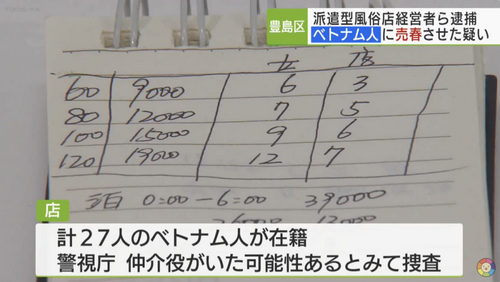 豊島区
派遣型風俗店経営者ら逮捕
ベトナム人に売春させた疑い
女 店
60 9000 6 3
80 12000 7 5
100 15000 9 6
120 19000 12 7
泊 0:00-6:00 39000
店
計27人のベトナム人が在籍
警視庁 仲介役がいた可能性あるとみて捜査